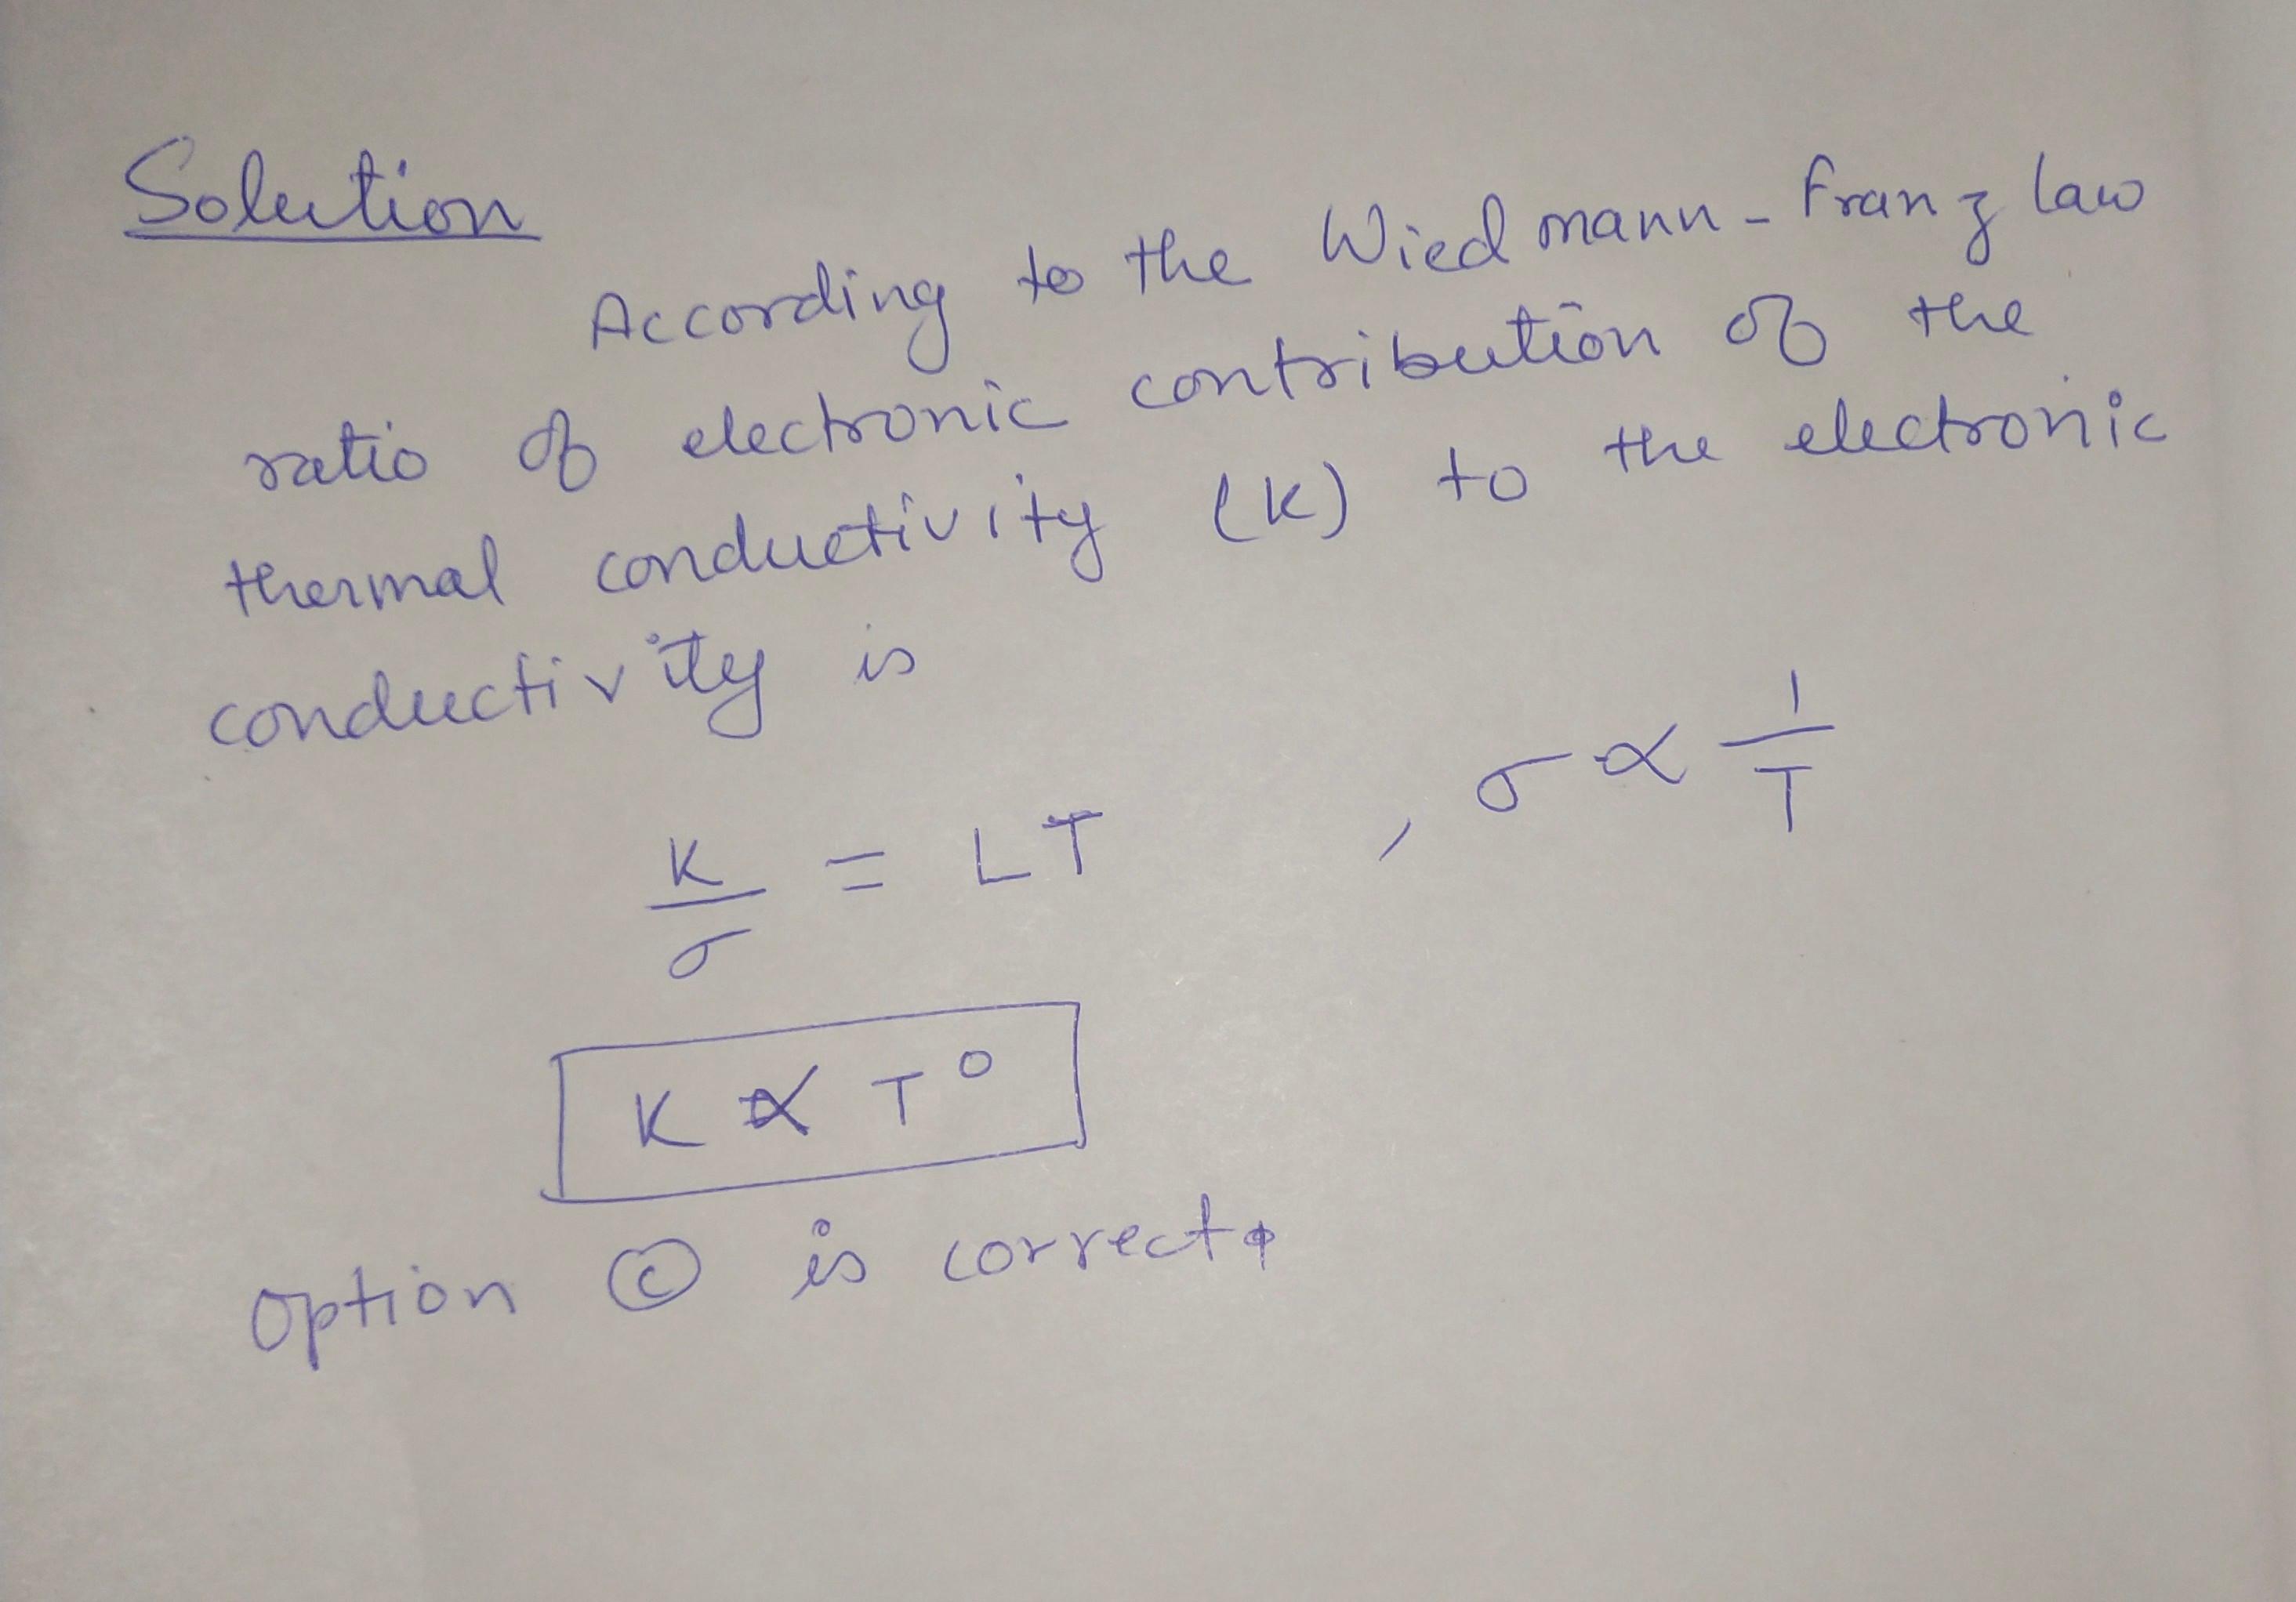 Solution
According to the Wiedmann-Franz law
ratio of electronic contribution of the
thermal conductivity (K) to the electronic
conductivity is
K/σ = LT , σ ∝ 1/T
K ∝ T⁰
Option ⓒ is correct.